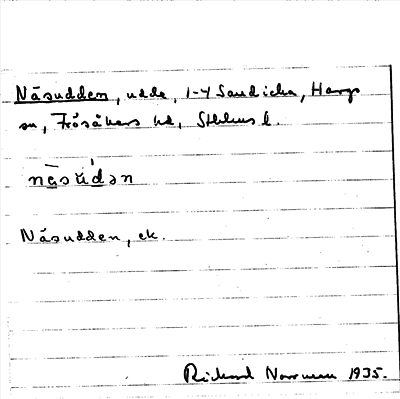 Näsudden, udde, 1-4 Sandicka, Hargs
sn, Frösåkers hd, Sthlms l.
näsúdən
Näsudden, ek.
Rickard Norrman 1935.